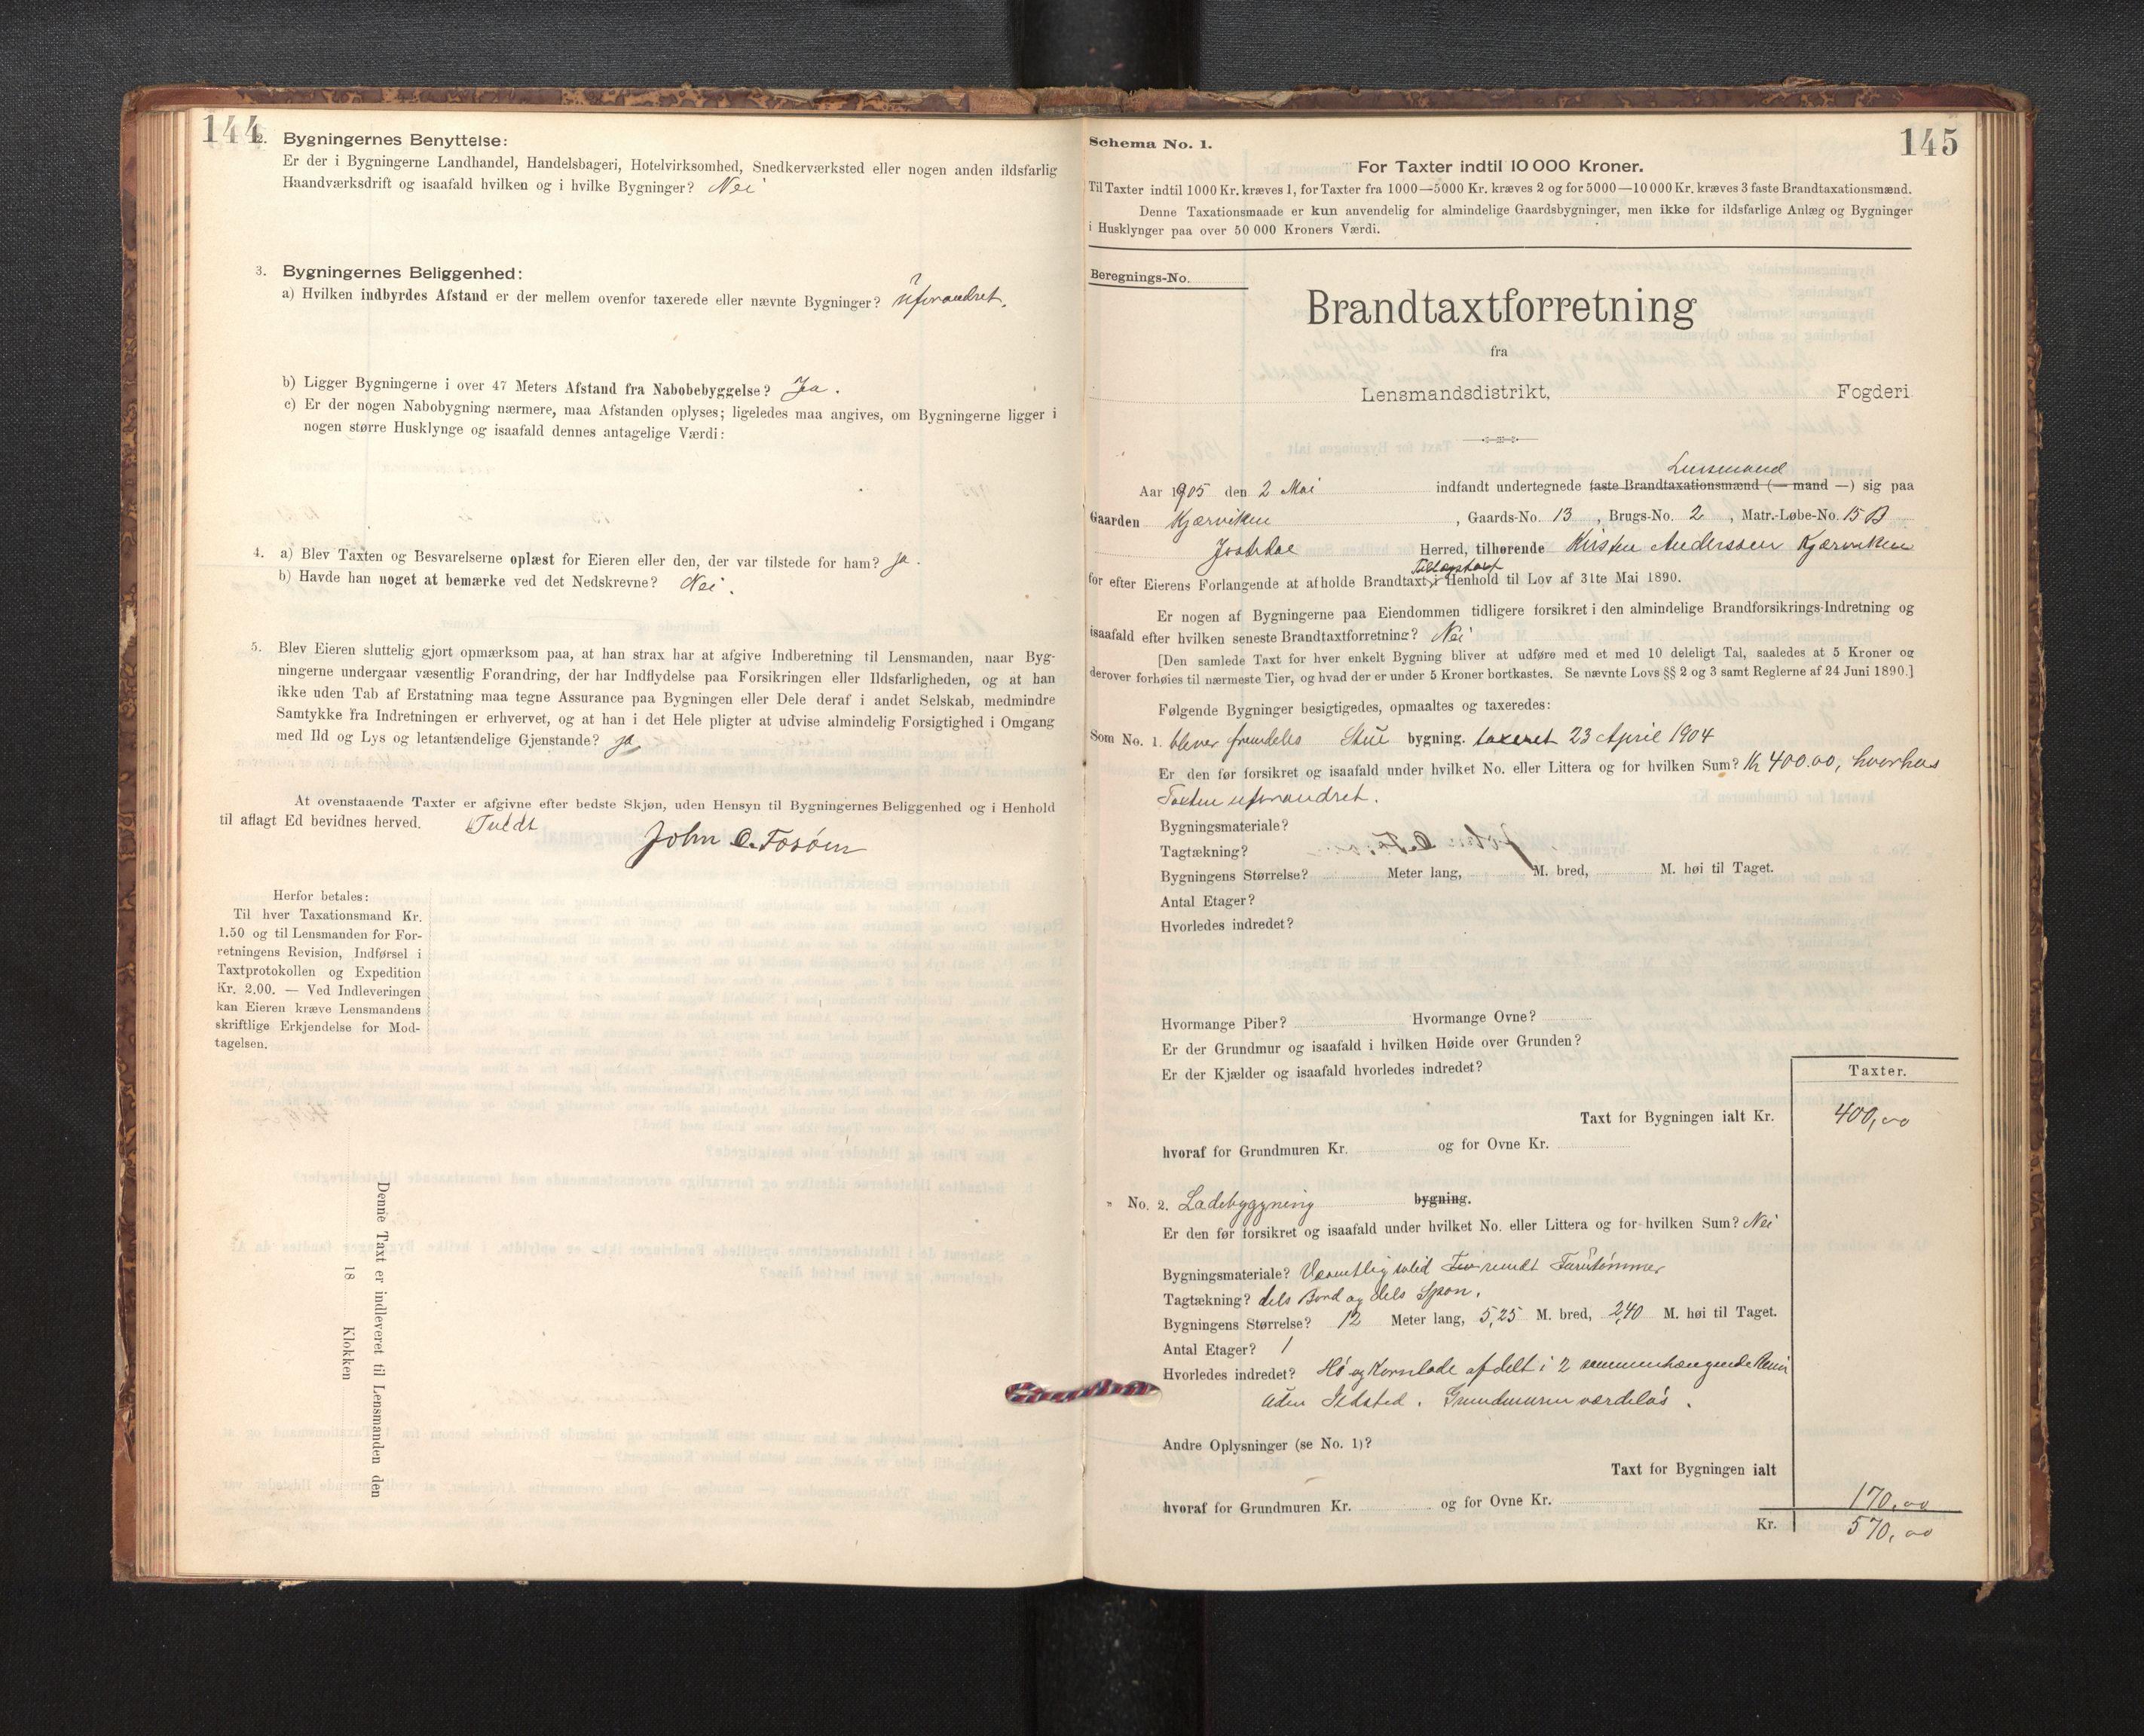 144
2. Bygningernes Benyttelse:
Er der i Bygningerne Landhandel, Handelsbageri, Hotelvirksomhed, Snedkerværksted eller nogen anden ildsfarlig
Haandværksdrift og isaafald hvilken og i hvilke Bygninger? Nei
3. Bygningernes Beliggenhed:
a) Hvilken indbyrdes Afstand er der mellem ovenfor taxerede eller nævnte Bygninger? Uforandret.
b) Ligger Bygningerne i over 47 Meters Afstand fra Nabobebyggelse? Ja.
c) Er der nogen Nabobygning nærmere, maa Afstanden oplyses; ligeledes maa angives, om Bygningerne ligger i
nogen større Husklynge og isaafald dennes antagelige Værdi:
4. a) Blev Taxten og Besvarelserne oplæst for Eieren eller den, der var tilstede for ham? Ja.
b) Havde han noget at bemærke ved det Nedskrevne? Nei.
5. Blev Eieren sluttelig gjort opmærksom paa, at han strax har at afgive Indberetning til Lensmanden, naar Byg-
ningerne undergaar væsentlig Forandring, der har Indflydelse paa Forsikringen eller Ildsfarligheden, og at han
ikke uden Tab af Erstatning maa tegne Assurance paa Bygningen eller Dele deraf i andet Selskab, medmindre
Samtykke fra Indretningen er erhvervet, og at han i det Hele pligter at udvise almindelig Forsigtighed i Omgang
med Ild og Lys og letantændelige Gjenstande? ja
At ovenstaaende Taxter er afgivne efter bedste Skjøn, uden Hensyn til Bygningernes Beliggenhed og i Henhold
til aflagt Ed bevidnes herved.
John O.
Herfor betales:
Til hver Taxationsmand Kr.
1.50 og til Lensmanden for For-
retningens Revision, Indførsel i
Taxtprotokollen og Expedition
Kr. 2.00. — Ved Indleveringen
kan Eieren kræve Lensmandens
skriftlige Erkjendelse for Mod-
tagelsen.
Denne Taxt er indleveret til Lensmanden den
18 Klokken
145
Schema No. 1.
For Taxter indtil 10 000 Kroner.
Til Taxter indtil 1000 Kr. kræves 1, for Taxter fra 1000—5000 Kr. kræves 2 og for 5000—10 000 Kr. kræves 3 faste Brandtaxationsmænd.
Denne Taxationsmaade er kun anvendelig for almindelige Gaardsbygninger, men ikke for ildsfarlige Anlæg og Bygninger
i Husklynger paa over 50 000 Kroners Værdi.
Beregnings-No.
Brandtaxtforretning
fra
Lensmandsdistrikt, Fogderi
Lensmand
Aar 1905 den 2 Mai indfandt undertegnede faste Brandtaxationsmænd (— mand —) sig paa
Gaarden Kjærviken, Gaards-No. 13, Brugs-No. 2, Matr.-Løbe-No. 15 B
Herred, tilhørende Kirsten Anderssen Kjærviken
Tillægstaxt
for efter Eierens Forlangende at afholde Brandtaxt i Henhold til Lov af 31te Mai 1890.
Er nogen af Bygningerne paa Eiendommen tidligere forsikret i den almindelige Brandforsikrings-Indretning og
isaafald efter hvilken seneste Brandtaxtforretning? Nei
[Den samlede Taxt for hver enkelt Bygning bliver at udføre med et med 10 deleligt Tal, saaledes at 5 Kroner og
derover forhøies til nærmeste Tier, og hvad der er under 5 Kroner bortkastes. Se nævnte Lovs §§ 2 og 3 samt Reglerne af 24 Juni 1890.]
Følgende Bygninger besigtigedes, opmaaltes og taxeredes:
Som No. 1. blever fremdeles Stue bygning. taxeret 23 April 1904
Er den før forsikret og isaafald under hvilket No. eller Littera og for hvilken Sum? Kr 400.00, hvorhos
Taxten uforandret.
Bygningsmateriale?
Tagtækning?
Bygningens Størrelse? Meter lang, M. bred, M. høi til Taget.
Antal Etager?
Hvorledes indredet?
Hvormange Piber? Hvormange Ovne?
Er der Grundmur og isaafald i hvilken Høide over Grunden?
Er der Kjælder og isaafald hvorledes indredet?
Taxter.
Taxt for Bygningen ialt Kr. 400,00
hvoraf for Grundmuren Kr. og for Ovne Kr.
" No. 2. Ladebyggning bygning.
Er den før forsikret og isaafald under hvilket No. eller Littera og for hvilken Sum? Nei
Bygningsmateriale? Væsentlig solid rundt Furutømmer
Tagtækning? dels Bord og dels Spon.
Bygningens Størrelse? 12 Meter lang, 5,25 M. bred, 2,40 M. høi til Taget.
Antal Etager? 1
Hvorledes indredet? Hø og Kornlade afdelt i 2 sammenhængende Rum
uden Ildsted. Grundmuren værdeløs.
Andre Oplysninger (se No. 1)?
Taxt for Bygningen ialt 170,00
hvoraf for Grundmuren Kr. og for Ovne Kr.
Kr. 570,00